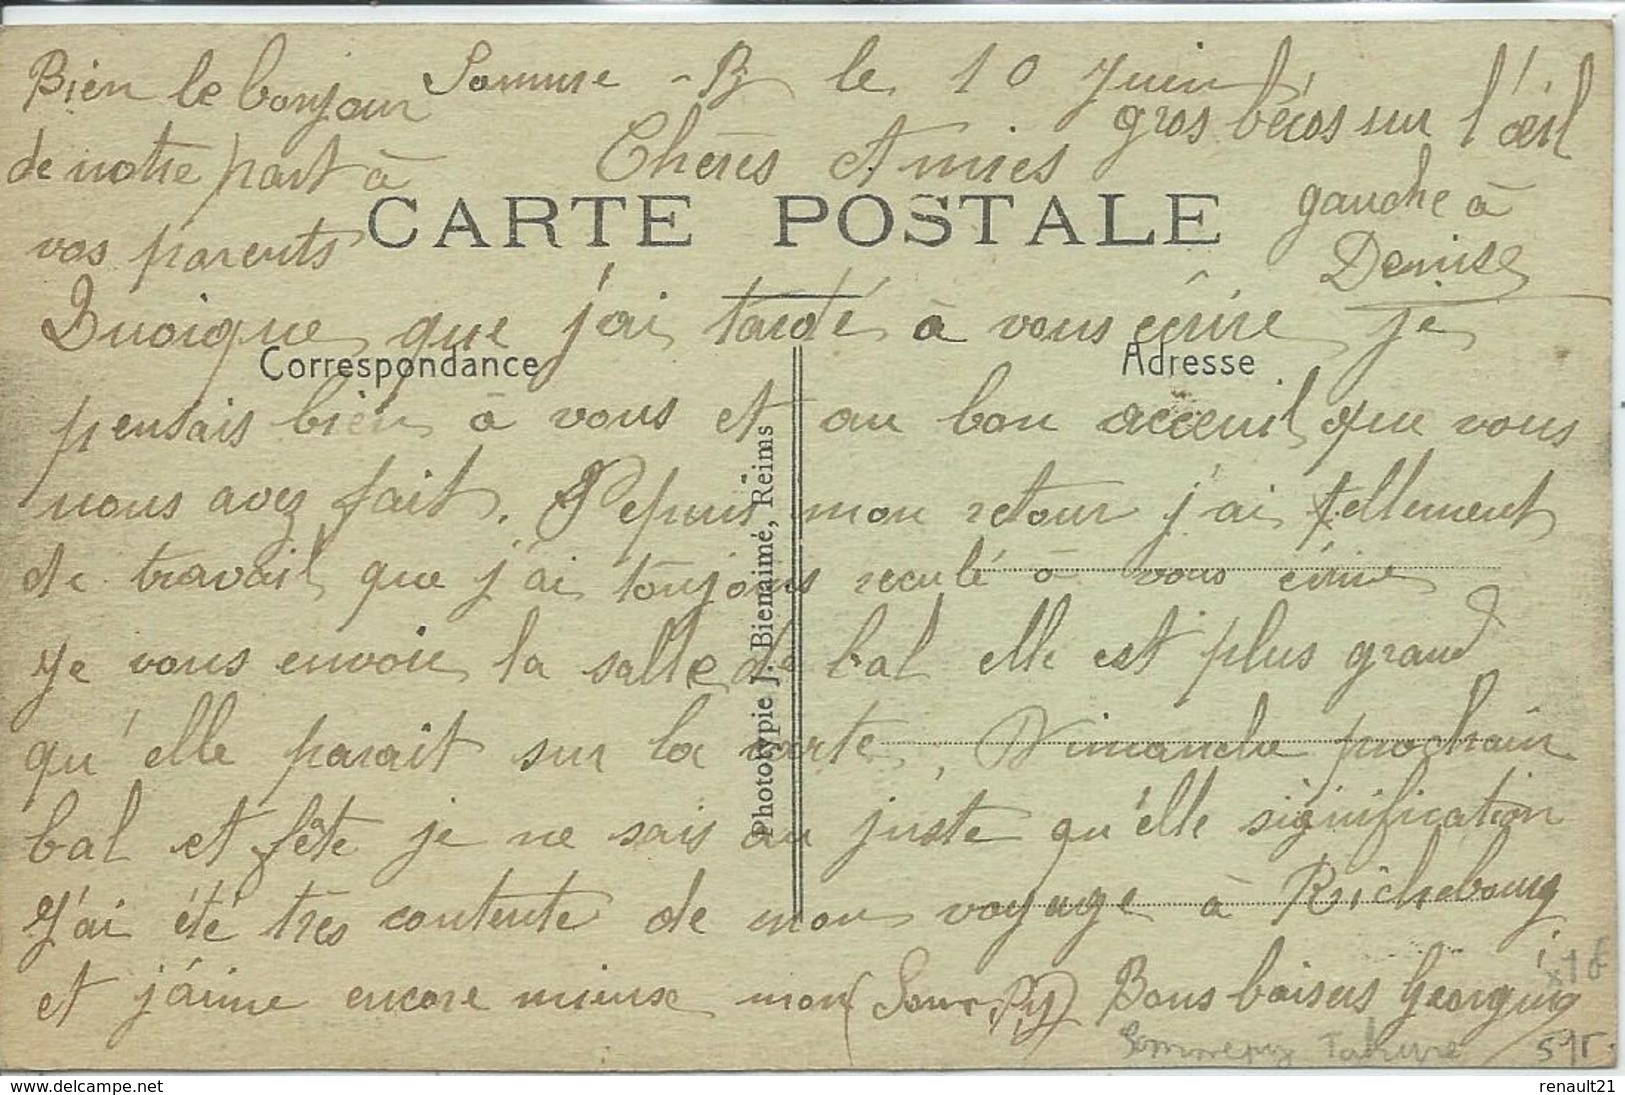 Bien le bonjour
de notre part à
vos parents
Somme-Py le 10 Juin
Chères Amies
gros bécos sur l'œil
gauche à
Denise
CARTE POSTALE
Quoique que j'ai tardé à vous écrire je
Correspondance
Adresse
pensais bien à vous et au bon acceuil que vous
nous avez fait. Depuis mon retour j'ai tellement
de travail que j'ai toujours reculé à vous écrire
Je vous envoie la salle de bal elle est plus grand
qu'elle parait sur la carte, Dimanche prochain
bal et fête je ne sais au juste qu'elle signification
J'ai été très contente de mon voyage à Richebourg
et j'aime encore mieux mon (Som-Py) Bons baisers Georgina
Phototypie J. Bienaimé, Reims
x16
Sommepy Tahure
renault21